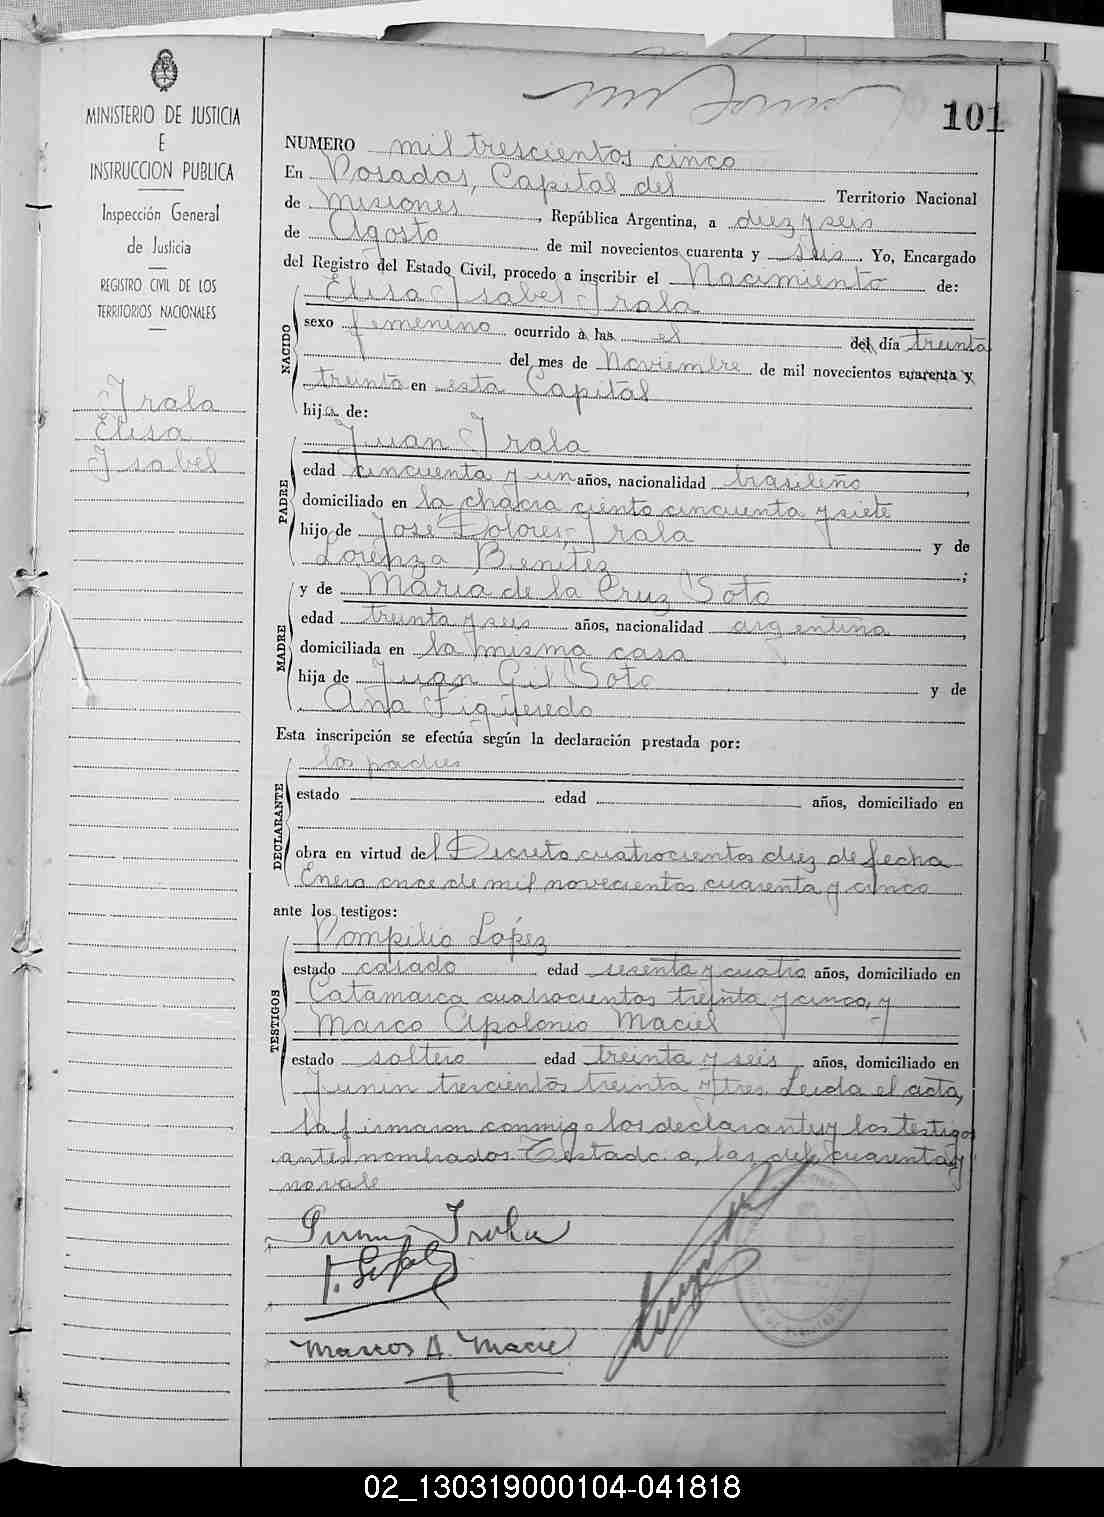 101
MINISTERIO DE JUSTICIA
E
INSTRUCCION PUBLICA
Inspección General
de Justicia
REGISTRO CIVIL DE LOS
TERRITORIOS NACIONALES
Irala
Elisa
Isabel
NUMERO mil trescientos cinco
En Posadas, Capital del Territorio Nacional
de Misiones, República Argentina, a diez y seis
de Agosto de mil novecientos cuarenta y seis. Yo, Encargado
del Registro del Estado Civil, procedo a inscribir el Nacimiento de:
NACIDO
Elisa Isabel Irala
sexo femenino ocurrido a las el del día treinta
del mes de Noviembre de mil novecientos cuarenta y
treinta en esta Capital
hija de:
PADRE
Juan Irala
edad cincuenta y un años, nacionalidad brasileño,
domiciliado en la chacra ciento cincuenta y siete
hijo de José Dolores Irala y de
Lorenza Benítez;
MADRE
y de María de la Cruz Soto
edad treinta y seis años, nacionalidad argentina,
domiciliada en la misma casa
hija de Juan Gil Soto y de
Ana Figueredo
Esta inscripción se efectúa según la declaración prestada por:
DECLARANTE
los padres
estado edad años, domiciliado en
obra en virtud del Decreto cuatrocientos diez de fecha
Enero once de mil novecientos cuarenta y cinco
ante los testigos:
TESTIGOS
Pompilio López
estado casado edad sesenta y cuatro años, domiciliado en
Catamarca cuatrocientos treinta y cinco, y
Marco Apolonio Maciel
estado soltero edad treinta y seis años, domiciliado en
Junin trescientos treinta y tres. Leida el acta,
la firmaron conmigo los declarantes y los testigos
antes nombrados. Testado: a, las, del, cuarenta y
no vale
Juan Irala
Marcos A. Maciel
02_130319000104-041818